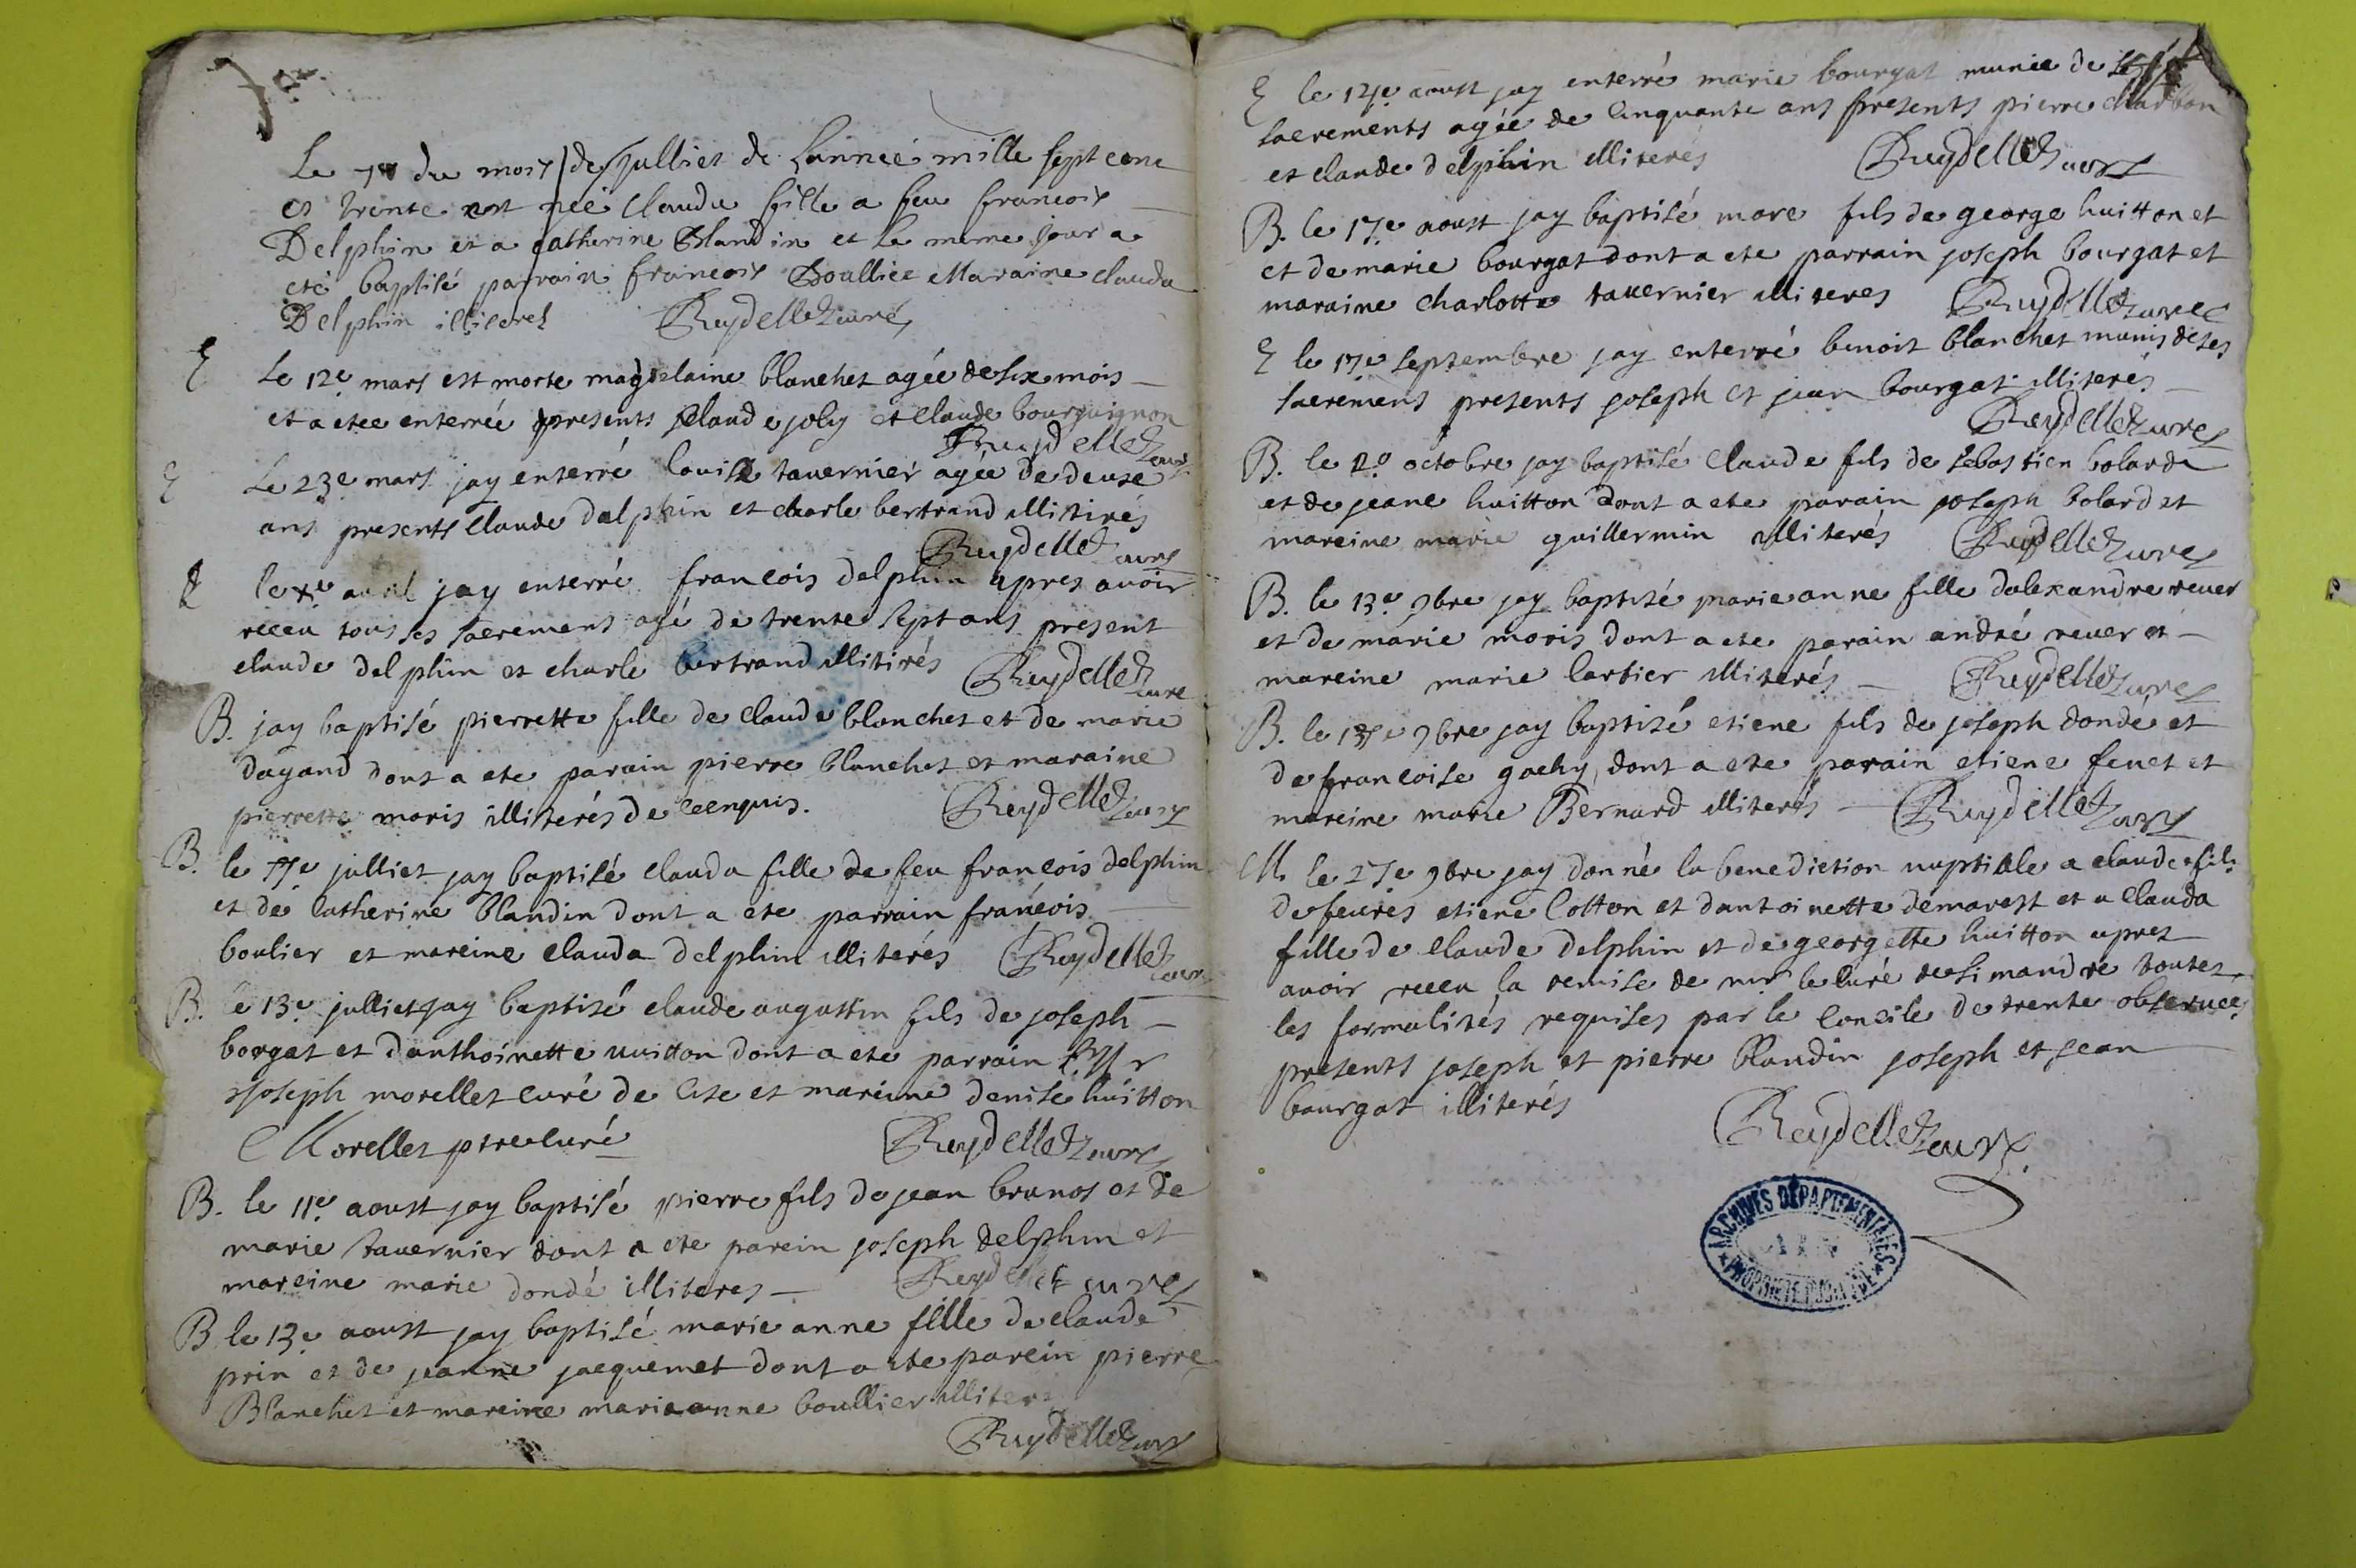 Le 7e du mois de Julliet de Lannee mille sept cent
et trente est née Clauda fille a feu francois
Delphin et a catherine Blandin et le meme jour a
eté baptisé parrain francois Boulliee Maraine clauda
Delphin illiteres Reydellet curé
E Le 12e mars est morte magdelaine blanchet agée de six mois
et a etee enterrée presents Claude joly et Claude bourguignon
Reydellet curé
E Le 23e mars jay enterré louise tauernier agée de deuse
ans presents Claude dalphin et charle bertrand illitirés
Reydellet curé
E le avril jay enterré francois delphin apres auoir
receu tous ses sacremens agé de trente sept ans present
claude delphin et charle bertrand illitirés Reydellet curé
B. jay baptisé pierrette fille de claude blanchet et de marie
dagand dont a ete parain pierre blanchet et maraine
pierrette moris illiterés de enquis. Reydellet curé
B. le 7e julliet jay baptisé clauda fille de feu francois delphin
et de Catherine blandin dont a ete parrain francois
boulier et mareine clauda delphin illiterés Reydellet curé
B. le 13e julliet jay baptisé claude augustin fils de joseph
borgat et danthoinette uuitton dont a ete parrain
joseph morellet curé de et mareine denise huitton
Morellet ptre curé Reydellet curé
B. le 11e aoust jay baptisé pierre fils de jean brunos et de
marie tauernier dont a ete parein joseph delphin et
mareine marie dondé illiteres Reydellet curé
B le 13e aoust jay baptisé marie anne fille de claude
prin et de jeanne jacquemet dont a ete parein pierre
Blanchet et mareine marie anne boullier illiter
Reydellet curé
E le aoust jay enterré marie bourgat munie de
sacrements agée de Cinquante ans presents pierre charbon
et claude delphin illiterés Reydellet curé
B. le 17e aoust jay baptisé marc fils de george huitton et
et de marie bourgat dont a ete parrain joseph bourgat et
maraine charlotte tauernier illiteres Reydellet curé
E le 17e septembre jay enterré benoit blanchet munis de ses
sacremens presents joseph et jean bourgat illiterés
Reydellet curé
B. le octobre jay baptisé Claude fils de sebastien bolarde
et de jeane huitton dont a ete parain joseph bolard et
mareine marie guillermin illiterés Reydellet curé
B. le 13e 9bre jay baptisé marie anne fille dalexandre reuer
et de marie moris dont a ete parain andré reuer et
mareine marie lartier illiterés Reydellet curé
B. le 9bre jay baptisé etiene fils de joseph dondé et
de francoise gachy, dont a ete parain etiene feuet et
mareine marie Bernard illiterés Reydellet curé
M. le 27e 9bre jay donné la benediction nuptiale a claude fils
de feures etiene Cotton et dantoinette demarest et a Clauda
fille de Claude delphin et de georgette huitton apres
auoir receu la remise de mr le Curé de simandre toutes
les formalités requises par le Concile de trente obseruées
presents joseph et pierre blandin joseph et jean
bourgat illiterés
Reydellet curé
ARCHIVES DÉPARTEMENTALES
PROPRIÉTÉ PUBLIQUE